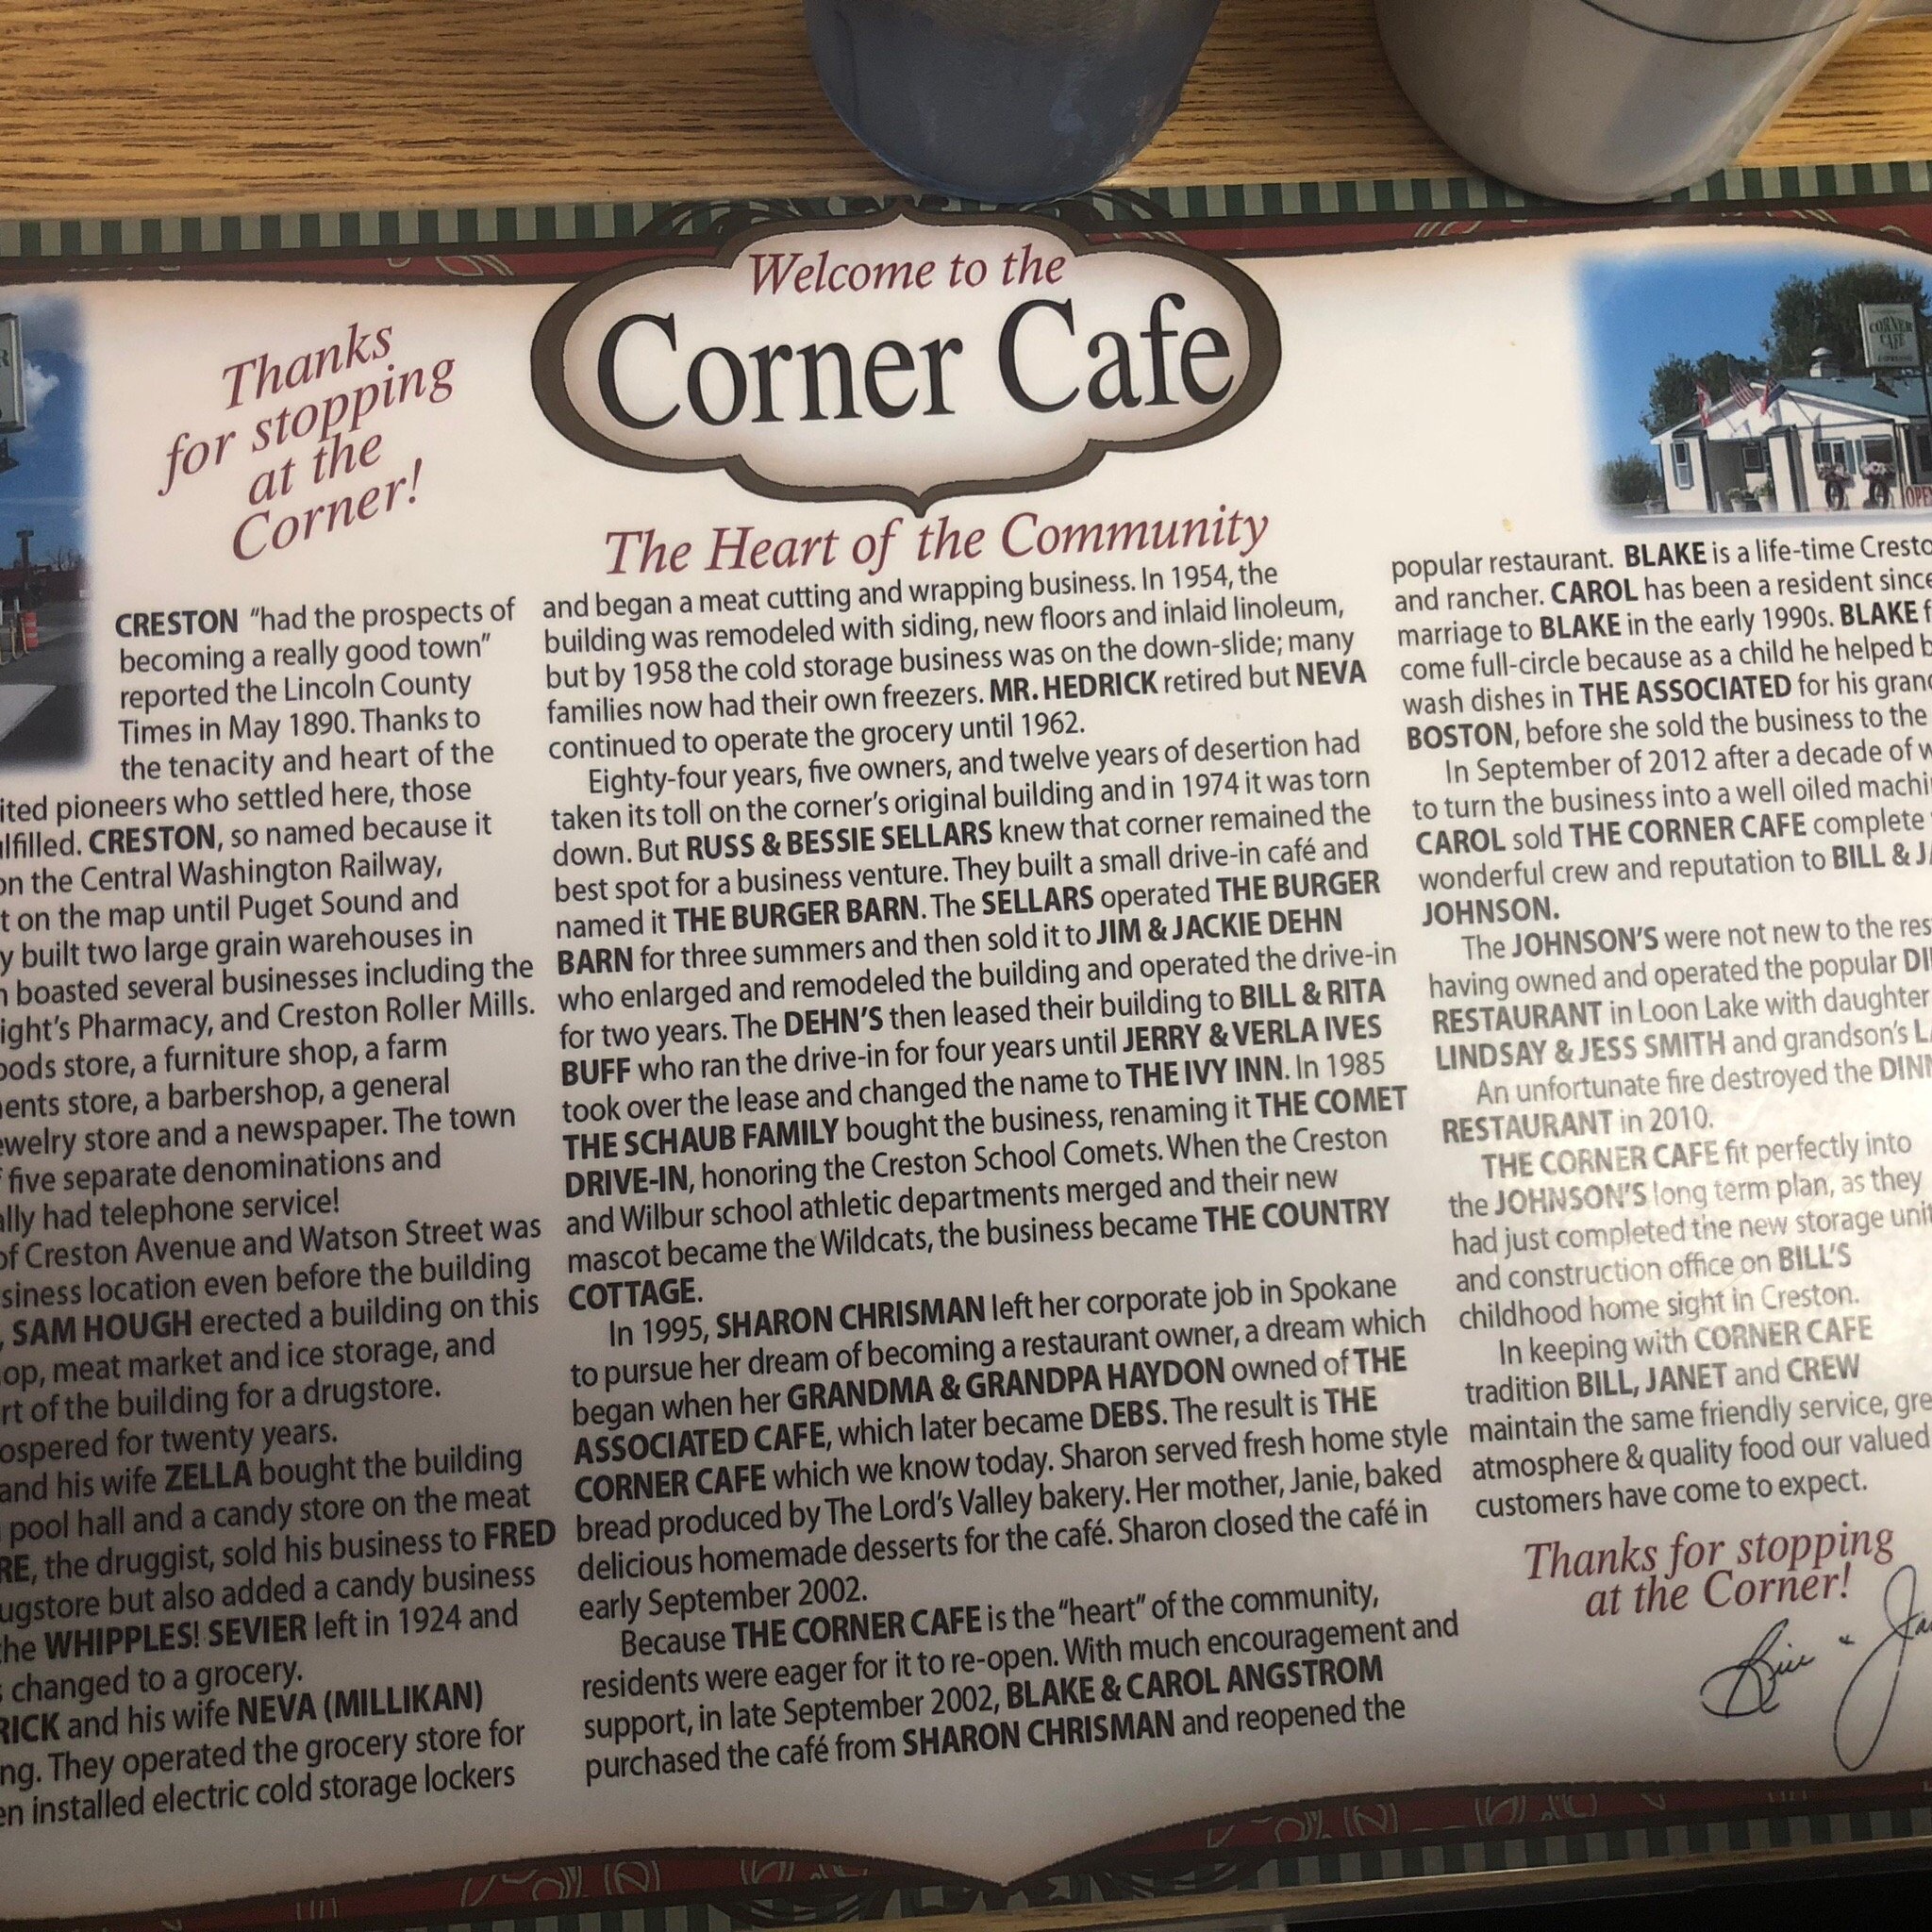 Welcome to the
Corner Cafe
The Heart of the Community
Thanks
for stopping
at the
Corner!
CORNER
CAFE
ESPRESSO
OPE
CRESTON "had the prospects of
becoming a really good town"
reported the Lincoln County
Times in May 1890. Thanks to
the tenacity and heart of the
ited pioneers who settled here, those
lfilled. CRESTON, so named because it
on the Central Washington Railway,
t on the map until Puget Sound and
y built two large grain warehouses in
n boasted several businesses including the
ight's Pharmacy, and Creston Roller Mills.
oods store, a furniture shop, a farm
ents store, a barbershop, a general
ewelry store and a newspaper. The town
f five separate denominations and
ally had telephone service!
of Creston Avenue and Watson Street was
siness location even before the building
, SAM HOUGH erected a building on this
op, meat market and ice storage, and
rt of the building for a drugstore.
ospered for twenty years.
and his wife ZELLA bought the building
pool hall and a candy store on the meat
RE, the druggist, sold his business to FRED
ugstore but also added a candy business
the WHIPPLES! SEVIER left in 1924 and
s changed to a grocery.
RICK and his wife NEVA (MILLIKAN)
ng. They operated the grocery store for
en installed electric cold storage lockers
and began a meat cutting and wrapping business. In 1954, the
building was remodeled with siding, new floors and inlaid linoleum,
but by 1958 the cold storage business was on the down-slide; many
families now had their own freezers. MR. HEDRICK retired but NEVA
continued to operate the grocery until 1962.
Eighty-four years, five owners, and twelve years of desertion had
taken its toll on the corner's original building and in 1974 it was torn
down. But RUSS & BESSIE SELLARS knew that corner remained the
best spot for a business venture. They built a small drive-in café and
named it THE BURGER BARN. The SELLARS operated THE BURGER
BARN for three summers and then sold it to JIM & JACKIE DEHN
who enlarged and remodeled the building and operated the drive-in
for two years. The DEHN'S then leased their building to BILL & RITA
BUFF who ran the drive-in for four years until JERRY & VERLA IVES
took over the lease and changed the name to THE IVY INN. In 1985
THE SCHAUB FAMILY bought the business, renaming it THE COMET
DRIVE-IN, honoring the Creston School Comets. When the Creston
and Wilbur school athletic departments merged and their new
mascot became the Wildcats, the business became THE COUNTRY
COTTAGE.
In 1995, SHARON CHRISMAN left her corporate job in Spokane
to pursue her dream of becoming a restaurant owner, a dream which
began when her GRANDMA & GRANDPA HAYDON owned of THE
ASSOCIATED CAFE, which later became DEBS. The result is THE
CORNER CAFE which we know today. Sharon served fresh home style
bread produced by The Lord's Valley bakery. Her mother, Janie, baked
delicious homemade desserts for the café. Sharon closed the café in
early September 2002.
Because THE CORNER CAFE is the "heart" of the community,
residents were eager for it to re-open. With much encouragement and
support, in late September 2002, BLAKE & CAROL ANGSTROM
purchased the café from SHARON CHRISMAN and reopened the
popular restaurant. BLAKE is a life-time Cresto
and rancher. CAROL has been a resident since
marriage to BLAKE in the early 1990s. BLAKE f
come full-circle because as a child he helped b
wash dishes in THE ASSOCIATED for his grand
BOSTON, before she sold the business to the
In September of 2012 after a decade of w
to turn the business into a well oiled machi
CAROL sold THE CORNER CAFE complete
wonderful crew and reputation to BILL & JA
JOHNSON.
The JOHNSON'S were not new to the res
having owned and operated the popular DI
RESTAURANT in Loon Lake with daughter
LINDSAY & JESS SMITH and grandson's L
An unfortunate fire destroyed the DINN
RESTAURANT in 2010.
THE CORNER CAFE fit perfectly into
the JOHNSON'S long term plan, as they
had just completed the new storage unit
and construction office on BILL'S
childhood home sight in Creston.
In keeping with CORNER CAFE
tradition BILL, JANET and CREW
maintain the same friendly service, gre
atmosphere & quality food our valued
customers have come to expect.
Thanks for stopping
at the Corner!